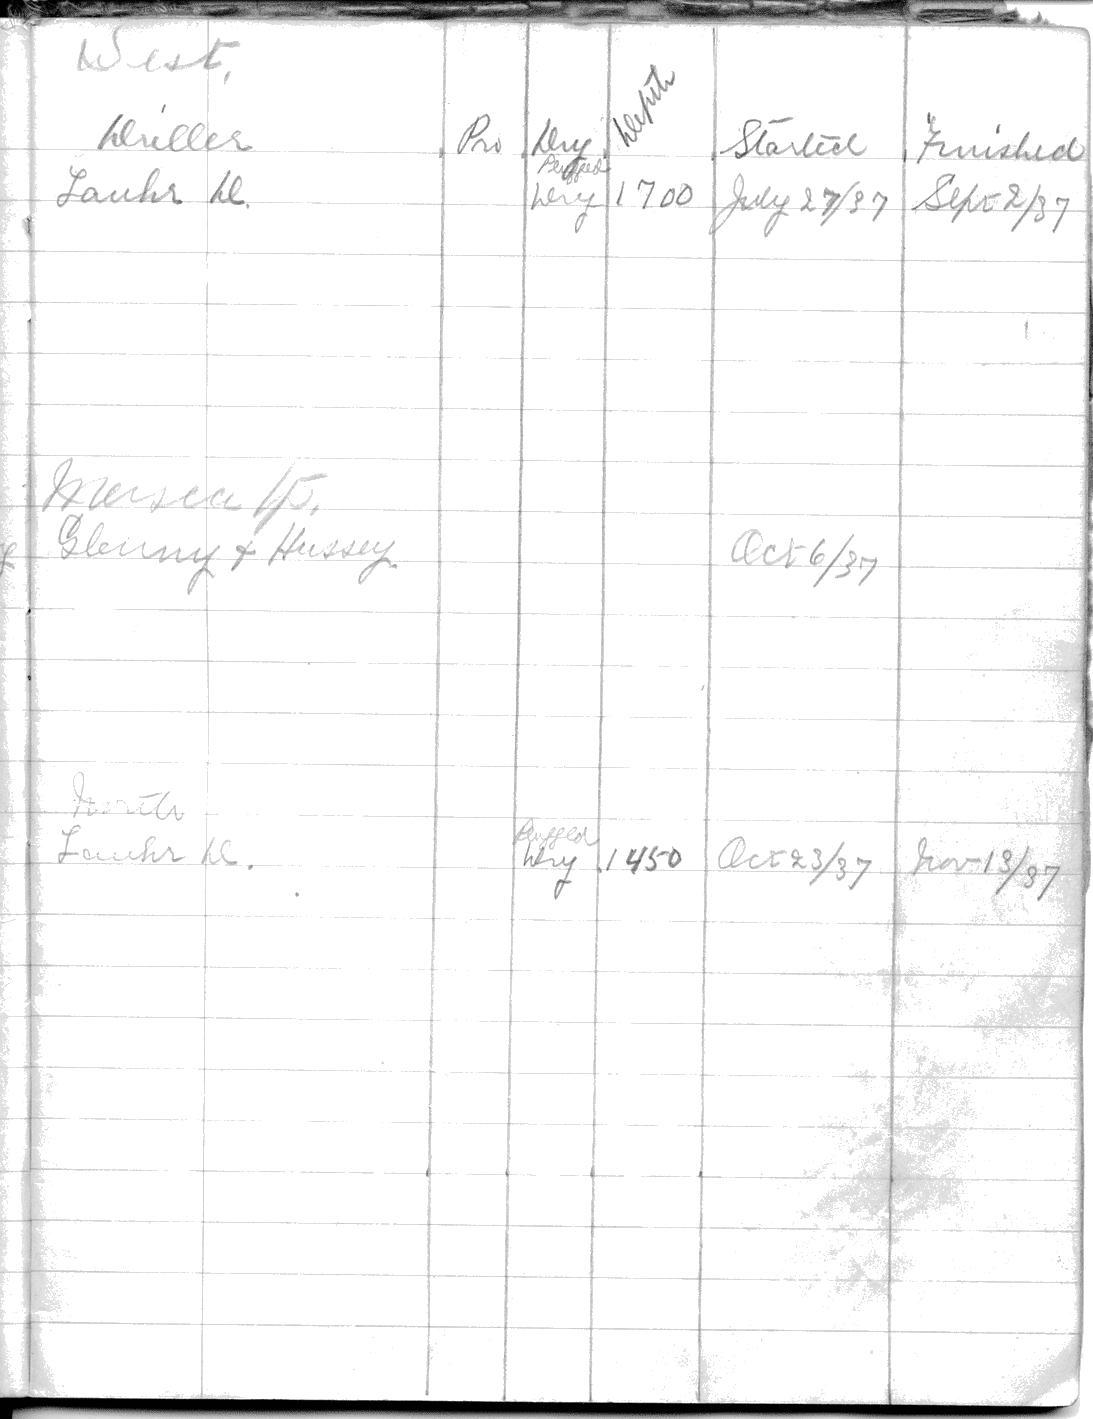 West,
Driller Pro Dry Depth Started Finished
Plugged
Lauhr D. Dry 1700 July 27/37 Sept 2/37
Mersea
Glenny & Hussey. Oct 6/37
North
Plugged
Lauhr D. Dry 1450 Oct 23/37 Nov 13/37